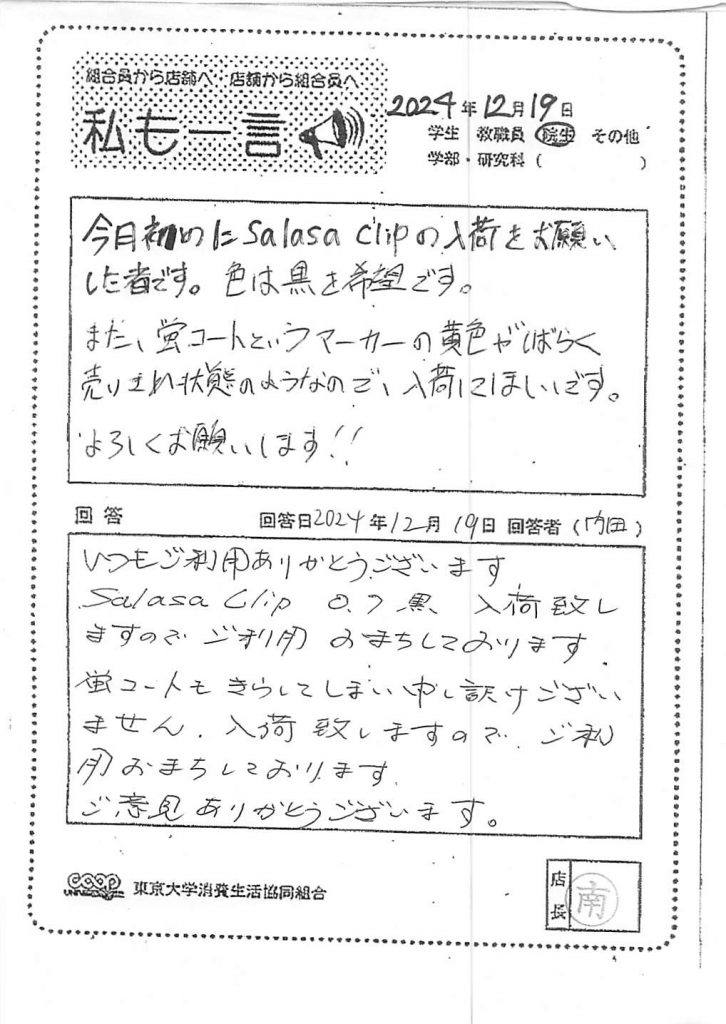 組合員から店舗へ・店舗から組合員へ
私も一言
2024年12月19日
学生 教職員 院生 その他
学部・研究科( )
今日初めに Salasa Clipの入荷をお願い
した者です。色は黒を希望です。
また、蛍コートというマーカーの黄色がしばらく
売りきれ状態のようなので、入荷してほしいです。
よろしくお願いします!!
回答
回答日2024年12月19日 回答者(内田)
いつもご利用ありがとうございます
Salasa Clip 0.7 黒、入荷致し
ますので ご利用 おまちしております.
蛍コートも きらしてしまい 申し訳けござい
ません. 入荷 致しますので. ご利
用 おまちしております.
ご意見ありがとうございます。
coop
東京大学消費生活協同組合
店長
南